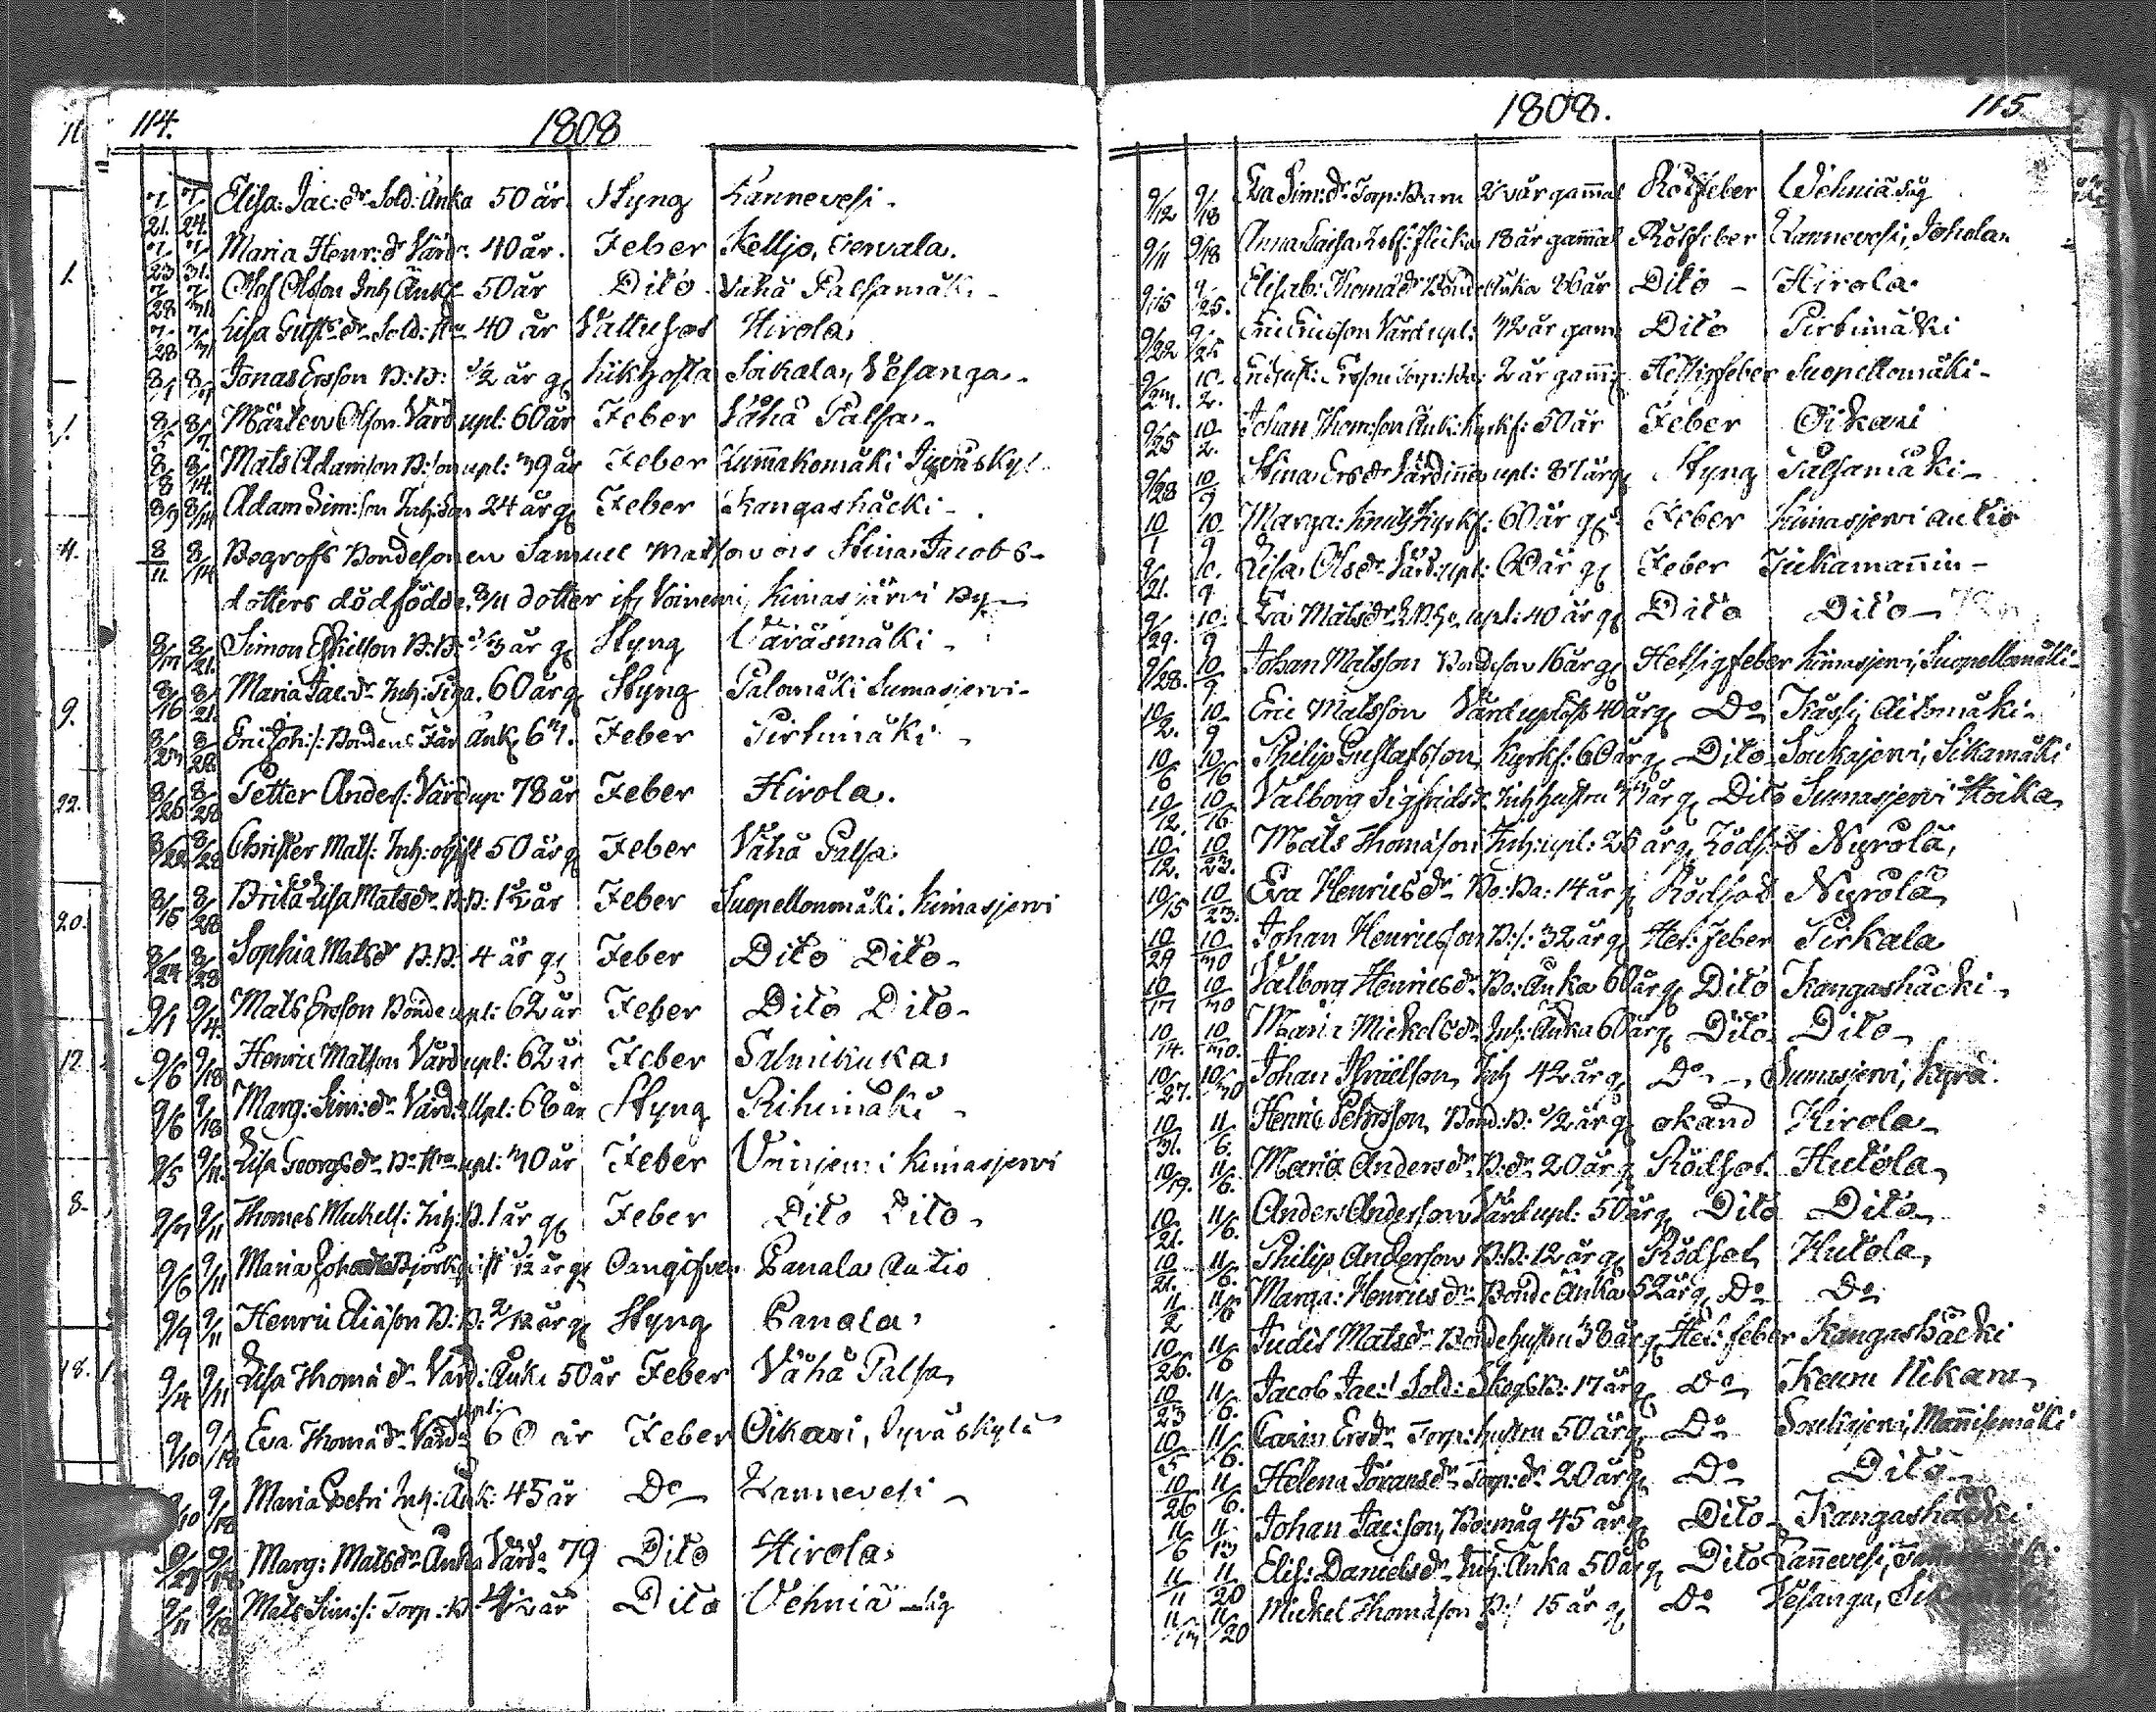 114. 1808
7/21. 7/24. Elisa Jac: dr Sold: Änka 50 år Styng Kannevesi.
7/23 7/31. Maria Henr: dr Värd: 40 år. Feber Keljo,
7/28 7/31 Olof Olsson Inh Änkl 50 år Dito Vähä Palsamäki
7/28 7/31 Lisa Gusts dr Sold: 40 år Vattusot Hirola
8/1 Jonas Ersson B:B: 1/2 år gl kikhosta Vesanga.
8/5 8/7. Mårten Olsson Värd upl: 60 år Feber Vähä Palsa.
8/8 8/14. Mats Adamson B:son upl: 39 år Feber Kummakomäki Jyväskyl
8/9 8/14 Adam Sim:son Inh: Son 24 år gl Feber Kangashäcki
8/11. 8/14 Begrofs Bondesonen Samuel Matsson ois Stina Jacobs-
dotters dödfödde 8/11 dotter ifr Kimasjärvi By
8/17 8/21. Simon Eskilson B:B: 1/3 år gl Styng Väräsmäki
8/16 8/21. Maria Jac: dr Inh: Piga. 60 år gl Styng Palomäki Sumasjervi
8/27 8/28 Eric Joh:s: Bondens Far Änkl 67. Feber Pirtimäki
8/26 8/28 Petter Anders: Värd upl: 78 år Feber Hirola.
8/22 8/28 Christer Mats: Inh: ogift 50 år gl Feber Vähä Palsa
8/15 8/28 Brita Lisa Mats dr B:B: 1 1/2 år Feber Suopellonmäki. Kimasjervi
8/24 8/28 Sophia Mats dr B:B: 4 år gl Feber Dito Dito
9/1 9/4. Mats Ersson Bonde upl: 62 år Feber Dito Dito
9/6 9/18 Henric Matson Värd upl: 62 år Feber Salmikuka
9/6 9/18 Marg: Sim: dr Värd: Upl: 68 år Styng Rihimäki
9/5 9/11. Lisa Georgs dr B: upl: 30 år Feber Kimasjervi
9/7 9/11 Thomas Mickels: Inh: B. 1 år gl Feber Dito Dito
9/6 9/11 Maria 12 år gl Oangifven Panala Autio
9/9 9/11 Henric Eliason B:B: 2/12 år gl Styng Panala
9/4 9/11 Lisa Thoma dr Värd: Änka 50 år Feber Vähä Palsa
9/10 9/18 Eva Thoma dr Värda upl: 60 år Feber Oikari, Jyväskylä
9/10 9/18 Maria Petri Inh: Änk: 45 år Do Kannevesi
Marg: Mats dr Änka Värd: 79 Dito Hirola
9/11 9/18 Mats Sim:s: Torp: B 4 1/2 år Dito Vehniä
1808. 115
9/12 9/18 Eva Sim: dr Torp: Barn 2 år gammal Rötfeber Wehniä
9/11 9/18 Anna Caisa flicka 18 år gammal Rötfeber Kannevesi, Johola
9/15 9/25. Elisab: Thomä dr Bonde Änka 66 år Dito Hirola
9/22 9/25 Eric Ericsson Värd upl: 72 år gam Dito Pirtimäki
9/27. 10/2. Ersson Torp: Ba: 2 år gamm: Hettigfeber Suopellomäki
9/25 10/2. Johan Thom:son Änk: Kyrkf: 50 år Feber Oikari
9/28 10/9 Stina Ers dr Värdinna upl: 87 år gl Styng Palsamäki
10/1 10/9 Marga: Kyrkf: 60 år gl Feber Kimasjervi Autio
9/21. 10/9 Lisa Ols dr Värd: upl: 60 år gl Feber Tickamannin
9/29. 10/9 Eva Mats dr upl: 40 år gl Dito Dito
9/28. 10/9 Johan Matsson Bondeson 16 år gl Hetsigfeber Kimasjervi, Suopellomäki
10/2. 10/9 Eric Matsson Värd uplöst 40 år gl Do Kässi, Aitomäki
10/6 10/16 Philip Gustafsson Kyrkf: 60 år gl Dito Soukajervi, Sikamäki
10/12. 10/16. Valborg Sigfrids dr Inh hustru år gl Dito Sumasjervi Hoika
10/12. 10/23. Mats Thomason Inh: upl: 26 år gl Rödsot Nyrölä
10/15 10/23. Eva Henrics dr Bo: Ba: 14 år gl Rödsot Nyrölä
10/29 10/30 Johan Henricson B:s: 32 år gl Het: Feber Pirkala
10/17 10/30 Valborg Henrics dr Bo: Änka 60 år gl Dito Kangashäcki
10/14. 10/30. Maria Mickels dr Inh: Änka 60 år gl Dito Dito
10/27. 10/30 Johan Israelson Inh 42 år gl Do Sumasjervi, Kyrö
10/31. 11/6. Henric Petersson, Bond: B: 1/2 år gl okänd Hirola
10/19. 11/6. Maria Anders dr B: dr 20 år gl Rödsot Hutola
10/21. 11/6. Anders Andersson Värd upl: 50 år gl Dito Dito
10/21. 11/6. Philip Andersson B:B: 12 år gl Rödsot Hutola
11/2 11/6 Marga: Henrics dr Bonde Änka 52 år gl Do Do
10/26. 11/6 Judit Mats dr Bondehustru 38 år gl Het: feber Kangashäcki
10/23 11/6. Jacob Jac:s Sold: B: 17 år gl Do Keuru
10/5 11/6. Carin Ers dr Torp: hustru 50 år gl Do Soukajervi, Mannisemäki
10/26 11/6. Helena Görans dr Torp: dr 20 år gl Do Dito
11/6 11/13 Johan Jac:son Bo: måg 45 år gl Dito Kangashäcki
11/11 11/20 Elis: Daniels dr Inh: Änka 50 år gl Dito Kannevesi,
11/13 11/20 Mickel Thomason B:s 15 år gl Do Vesanga,